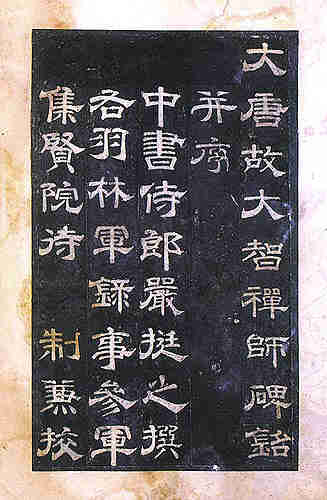 大唐故大智禪師碑銘
并序
中書侍郎嚴挺之撰
右羽林軍錄事參軍
集賢院待 制兼挍